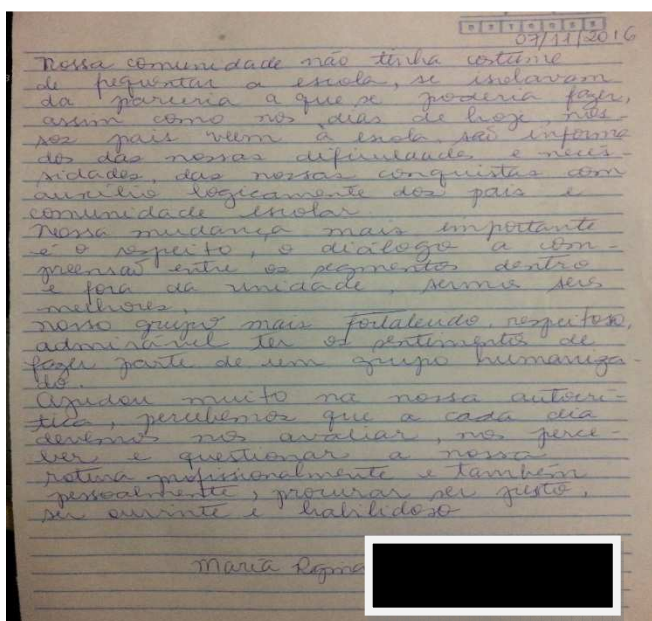 07/11/2016
Nossa comunidade não tinha costume
de frequentar a escola, se isolavam
da parceria a que se poderia fazer,
assim como nos dias de hoje, nos-
sos pais vem à escola são informa
dos das nossas dificuldades e neces-
sidades, das nossas conquistas com
auxílio logicamente dos pais e
comunidade escolar.
Nossa mudança mais importante
é o respeito, o diálogo a com-
preensão entre os segmentos dentro
e fora da unidade, sermos seres
melhores,
nosso grupo mais fortalecido, respeitoso,
admirável ter os sentimentos de
fazer parte de um grupo humaniza-
do.
Ajudou muito na nossa autocrí-
tica, percebemos que a cada dia
devemos nos avaliar, nos perce-
ber e questionar a nossa
rotina profissionalmente e também
pessoalmente, procurar ser justo,
ser ouvinte e habilidoso
Maria